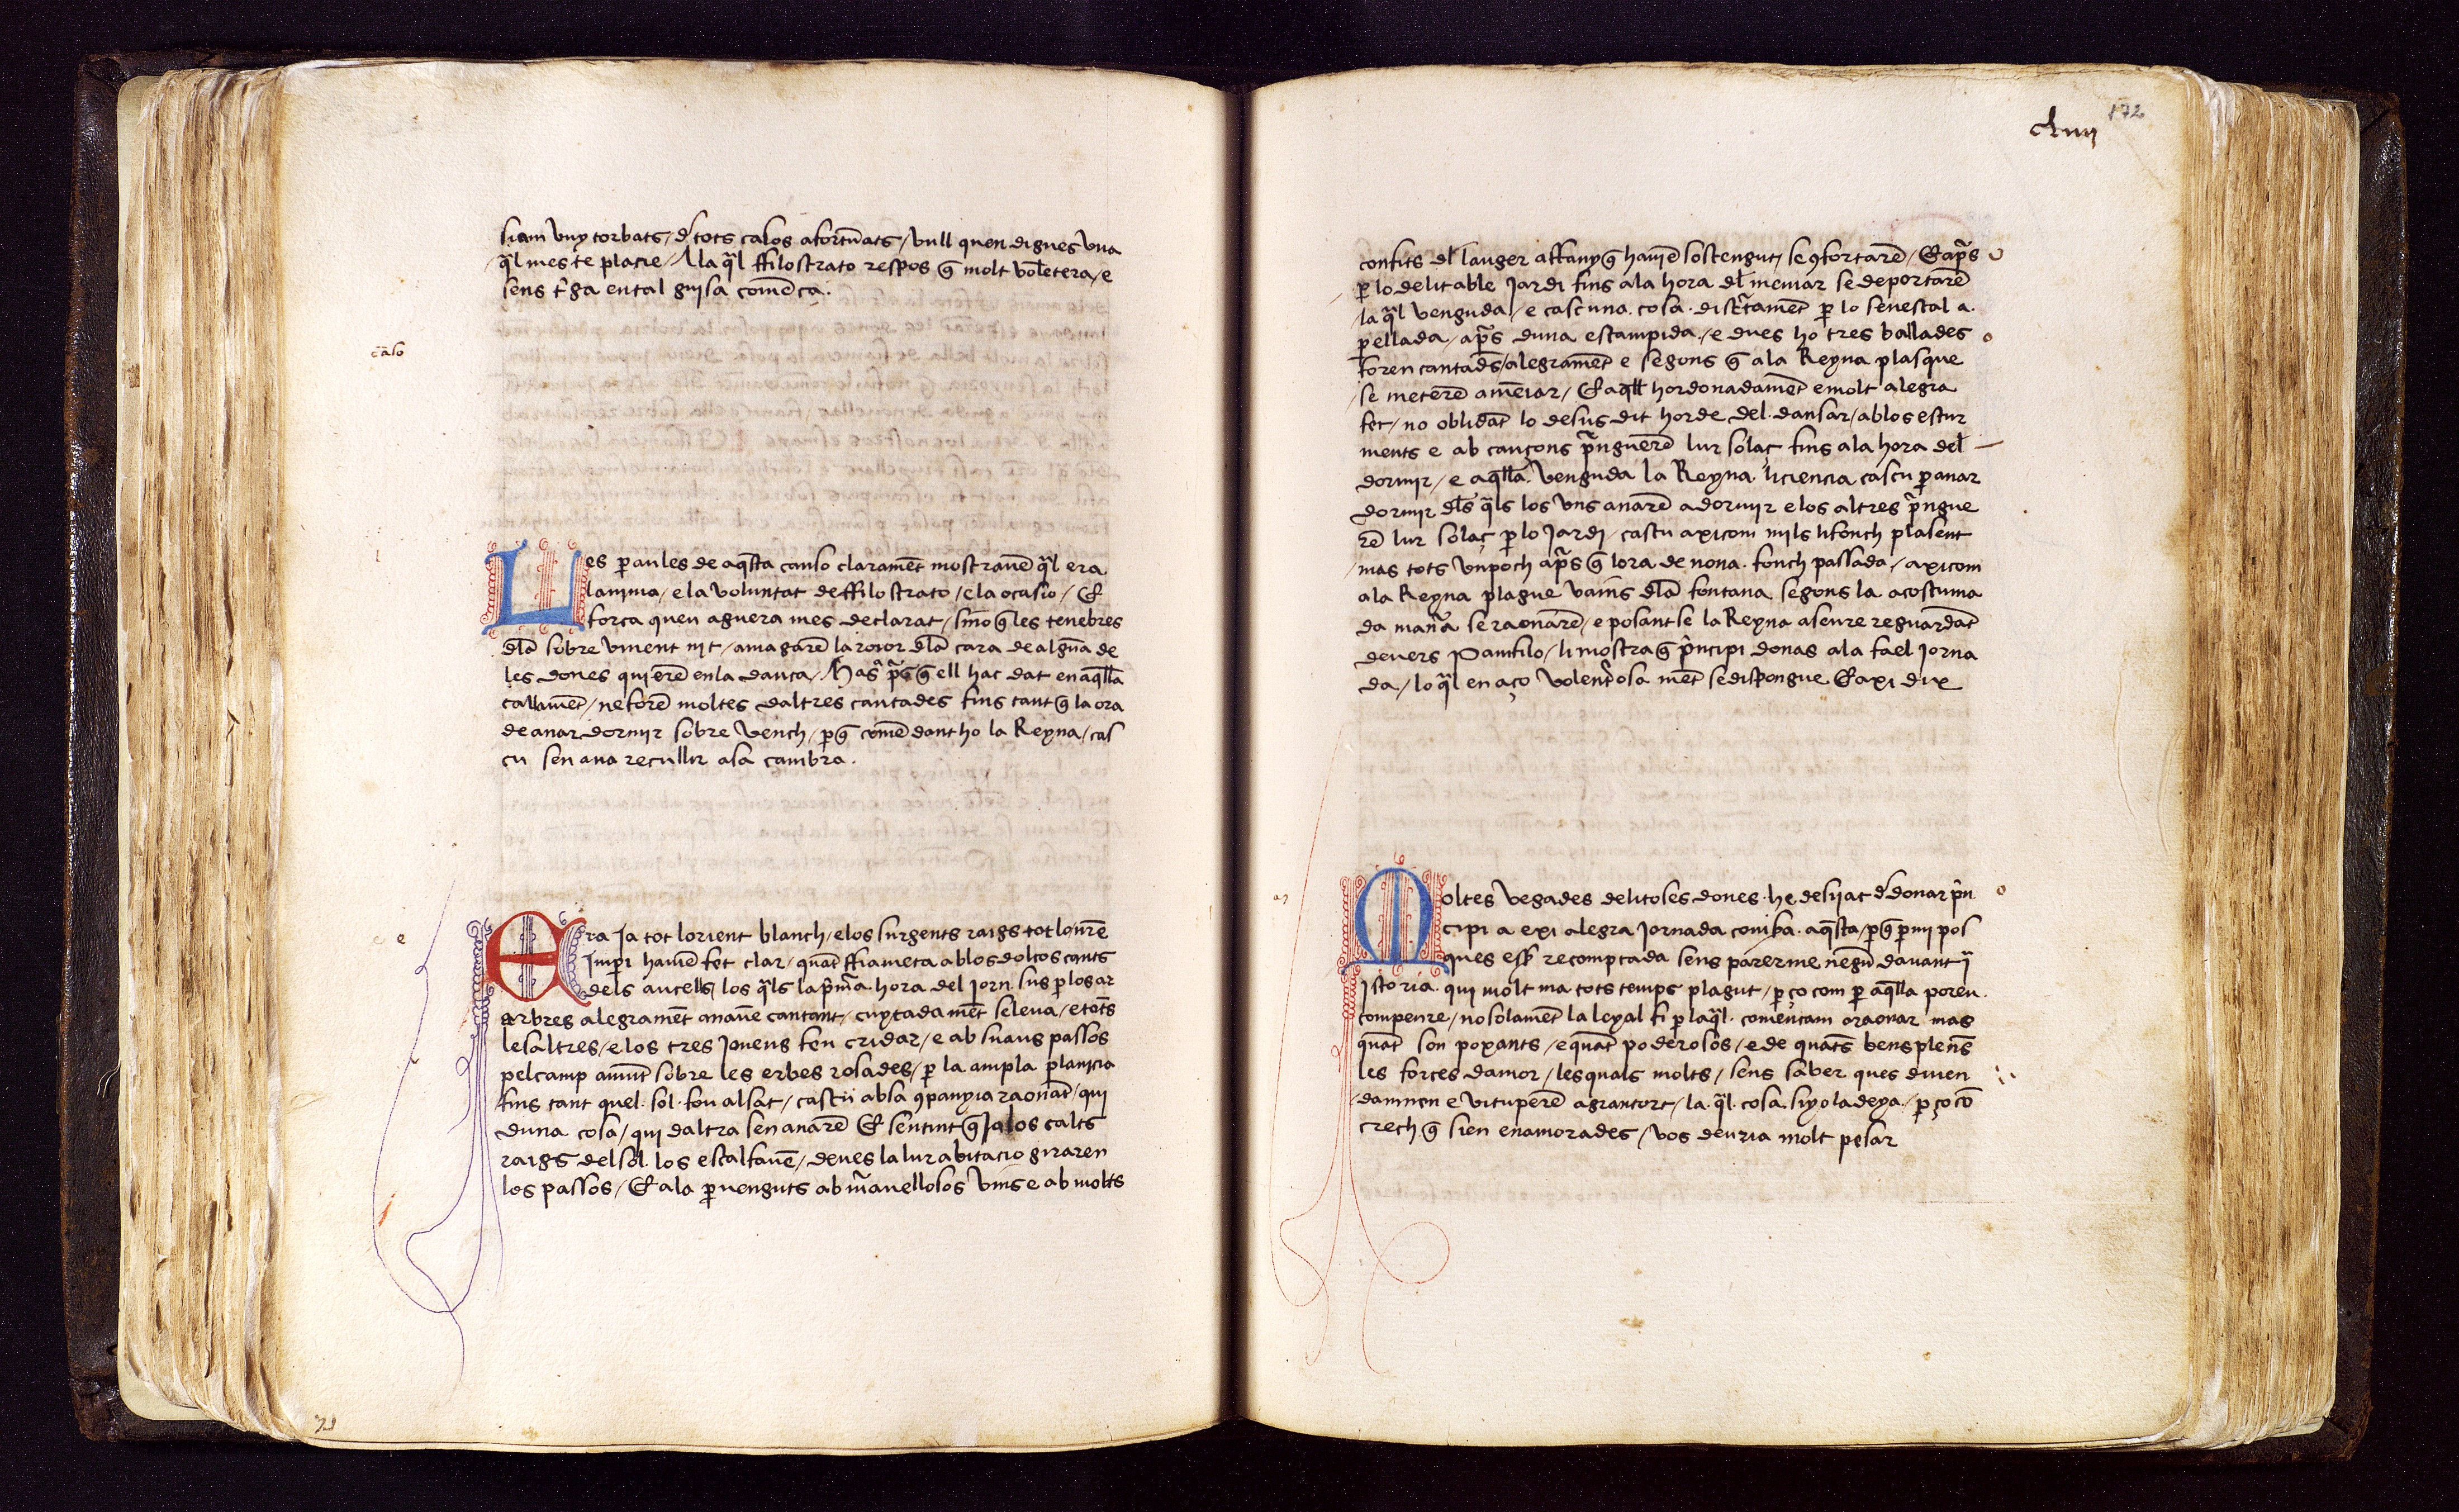 siam vuy torbats / d̉ tots casos afortuats / vull quen digues vna
q̃l mes te placie / Ala q̃l ffilostrato respos q̃ molt volẽtera / e
sens t'ga en tal guisa comẽca.
cãso
Les paules de aq̃sta canso claramẽt mostrauẽ q̃l era
lanima / e la voluntat de ffilostrato / e la ocasio / Et
forca quen aguera mes declarat / sino q̃ les tenebres
dl̃a sobre vinent nit / amagarẽ la roior dl̃a cara de alguã de
les dones qui erẽ en la dança / Mas ap̃s q̃ ell hac dat en aq̃lla
callamẽt / ne forẽ moltes daltres cantades fins tant q̃ la ora
de anar dormir sobre vench / p q̃ comẽdantho la Reyna / cas
cu sen ana recullir asa cambra.
e e
Era Ja tot lorient blanch / e los surgents raigs tot lo nr̃e
Imperi hauiẽ fet clar / quãt ffiameta ab los dolços cants
dels aucells los q̃ls la p̃mã hora del Jorn sus p los ar
arbres alegramẽt anauẽ cantant / cuytadamẽt se leua / e tots
les altres / e los tres Jouens feu cridar / e ab suaus passos
pel camp amũt sobre les erbes rosades / p la ampla planicia
fins tant quel sol fou alsat / cascũ ab sa 9panyia raonãt / qui
duna cosa / qui daltra sen anarẽ Et sentint q̃ Ja los calts
raigs del sol los escalfauẽ / deues la lur abitacio giraren
los passos / Et ala peruenguts ab m̃auellosos vins e ab molts
71
172
clxviij
confits dl̃ lauger affany q̃ hauiẽ sostengut / se 9fortarẽ / Et ap̃s
p lo delitable Jardi fins ala hora dl̃ meniar se deportarẽ
la q̃l venguda / e cascuna cosa discr̃tamẽt p lo senescal a
pellada / ap̃s duna estampida / e dues ho tres ballades
foren cantads̃ / alegramẽt e segons q̃ ala Reyna plasque
se meterẽ a mẽiar / Et aq̃ll hordonadamẽt e molt alegra
fet / no oblidãt lo desus dit horde del dansar / ab los estur
ments e ab cançons p̃nguerẽ lur solaç fins ala hora del
dormir / e aq̃lla venguda la Reyna liciencia cascu p anar
dormir dl̃s q̃ls los vns anarẽ a dormir e los altres p̃ngue
rẽ lur solaç p lo Jardi / cascu axicom mils li fonch plasent
mas tots vn poch ap̃s q̃ lora de nona fonch passada / axicom
ala Reyna plague vains̃ dl̃a fontana segons la acostuma
da mañã se raonarẽ / e posantse la Reyna aseure reguardãt
deuers Pamfilo / li mostra q̃ p̃ncipi donas ala fael Jorna
da / lo q̃l en aço volent'osa mẽt se dispongue Et axi dix
Moltes vegades delitoses dones he desijat d̉ donar p̃n
cipi a exi alegra Jornada com ha aq̃sta / p q̃ p mi pos
ques esser recomptada sens parerme negũ dauant ỹ
istoria qui molt ma tots temps plagut / p ço com p aq̃lla poreu
compenre / no solamẽt la leyal fi p la q̃l comencam a raonar mas
quãt son poxants / e quãt poderosos / e de quãts bens plens
les forces damor / les quals molts / sens saber ques diuen
dampnen e vituperẽ agrantort / la q̃l cosa si yo la deya / p ço cõ
crech q̃ sien enamorades / vos deuria molt pesar